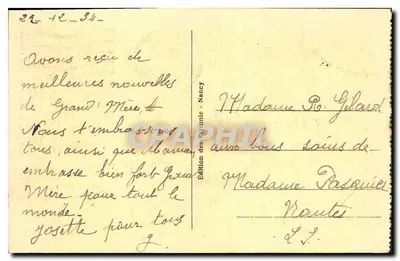 22-12-34-
Avons reçu de
meilleures nouvelles
de Grand' Mère &
Nous t'embrassons
tous, ainsi que Maman
embrasse bien fort Gran
Mère pour tout le
monde-
Josette pour tous
J.
Edition des - Nancy
CPARAMA
Madame R. Gilard
aux bons soins de
Madame
Nantes
L. I.